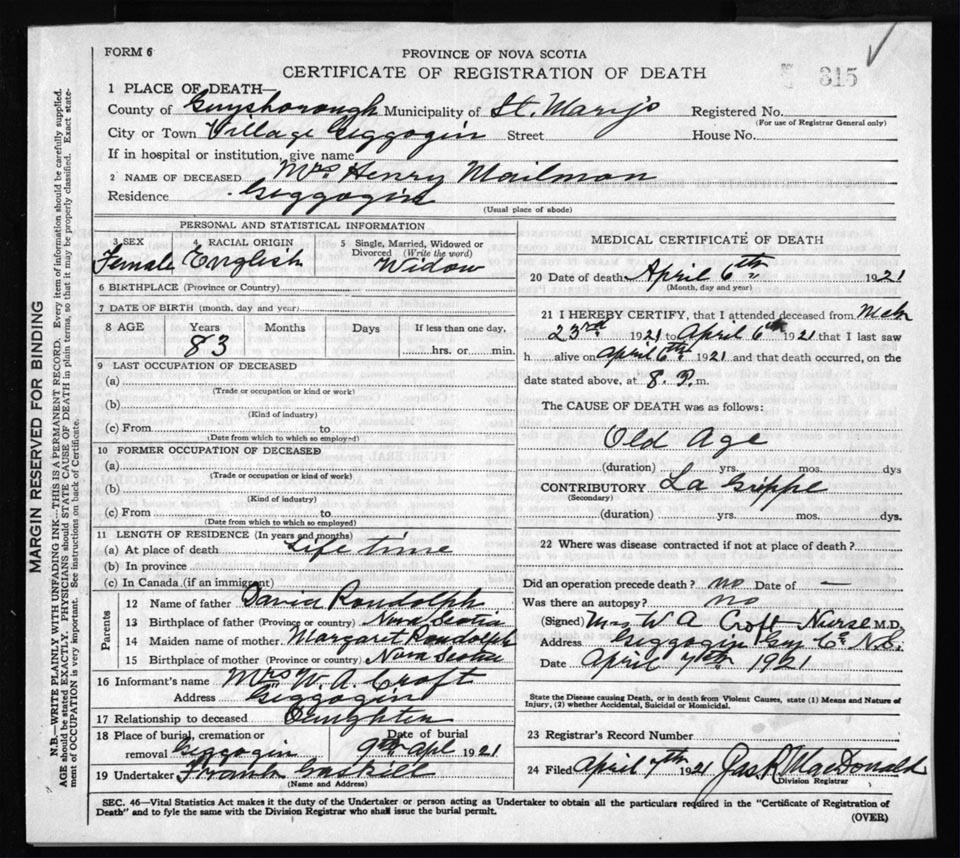 FORM 6
PROVINCE OF NOVA SCOTIA
CERTIFICATE OF REGISTRATION OF DEATH
315
1 PLACE OF DEATH—
County of Guysborough Municipality of St. Marys Registered No.
(For use of Registrar General only)
City or Town Village Geggogin Street House No.
If in hospital or institution, give name
2 NAME OF DECEASED Mrs Henry Mailman
Residence Geggogin
(Usual place of abode)
PERSONAL AND STATISTICAL INFORMATION
3 SEX 4 RACIAL ORIGIN 5 Single, Married, Widowed or
Divorced (Write the word)
Female English Widow
6 BIRTHPLACE (Province or Country)
7 DATE OF BIRTH (month, day and year)
8 AGE Years Months Days If less than one day,
83 hrs. or min.
9 LAST OCCUPATION OF DECEASED
(a)
(Trade or occupation or kind or work)
(b)
(Kind of industry)
(c) From to
(Date from which to which so employed)
10 FORMER OCCUPATION OF DECEASED
(a)
(Trade or occupation or kind of work)
(b)
(Kind of industry)
(c) From to
(Date from which to which so employed)
11 LENGTH OF RESIDENCE (In years and months)
(a) At place of death Life time
(b) In province
(c) In Canada (if an immigrant)
Parents
12 Name of father David Roudolph
13 Birthplace of father (Province or country) Nova Scotia
14 Maiden name of mother Margaret Roudolph
15 Birthplace of mother (Province or country) Nova Scotia
16 Informant's name Mrs W. A. Croft
Address Geggogin
17 Relationship to deceased Daughter
18 Place of burial, cremation or Date of burial
removal Geggogin 9th Apl 1921
19 Undertaker Frank Gaskill
(Name and Address)
MEDICAL CERTIFICATE OF DEATH
20 Date of death April 6th 1921
(Month, day and year)
21 I HEREBY CERTIFY, that I attended deceased from Mch
23rd 1921 to April 6th 1921 that I last saw
h alive on April 6th 1921 and that death occurred, on the
date stated above, at 8. P. m.
The CAUSE OF DEATH was as follows:
Old Age
(duration) yrs. mos. dys
CONTRIBUTORY La Grippe
(Secondary)
(duration) yrs. mos. dys.
22 Where was disease contracted if not at place of death?
Did an operation precede death? no Date of —
Was there an autopsy? no
(Signed) Mrs W A Croft Nurse M.D.
Address Geggogin Guy Co N.S.
Date April 7th 1921
State the Disease causing Death, or in death from Violent Causes, state (1) Means and Nature of
Injury, (2) whether Accidental, Suicidal or Homicidal.
23 Registrar's Record Number
24 Filed April 7th 1921 Jas R MacDonald
Division Registrar
SEC. 46—Vital Statistics Act makes it the duty of the Undertaker or person acting as Undertaker to obtain all the particulars required in the "Certificate of Registration of
Death" and to fyle the same with the Division Registrar who shall issue the burial permit.
(OVER)
MARGIN RESERVED FOR BINDING
N.B.—WRITE PLAINLY WITH UNFADING INK—THIS IS A PERMANENT RECORD. Every item of information should be carefully supplied.
AGE should be stated EXACTLY. PHYSICIANS should STATE CAUSE OF DEATH in plain terms, so that it may be properly classified. Exact state-
ment of OCCUPATION is very important. See instructions on back of Certificate.